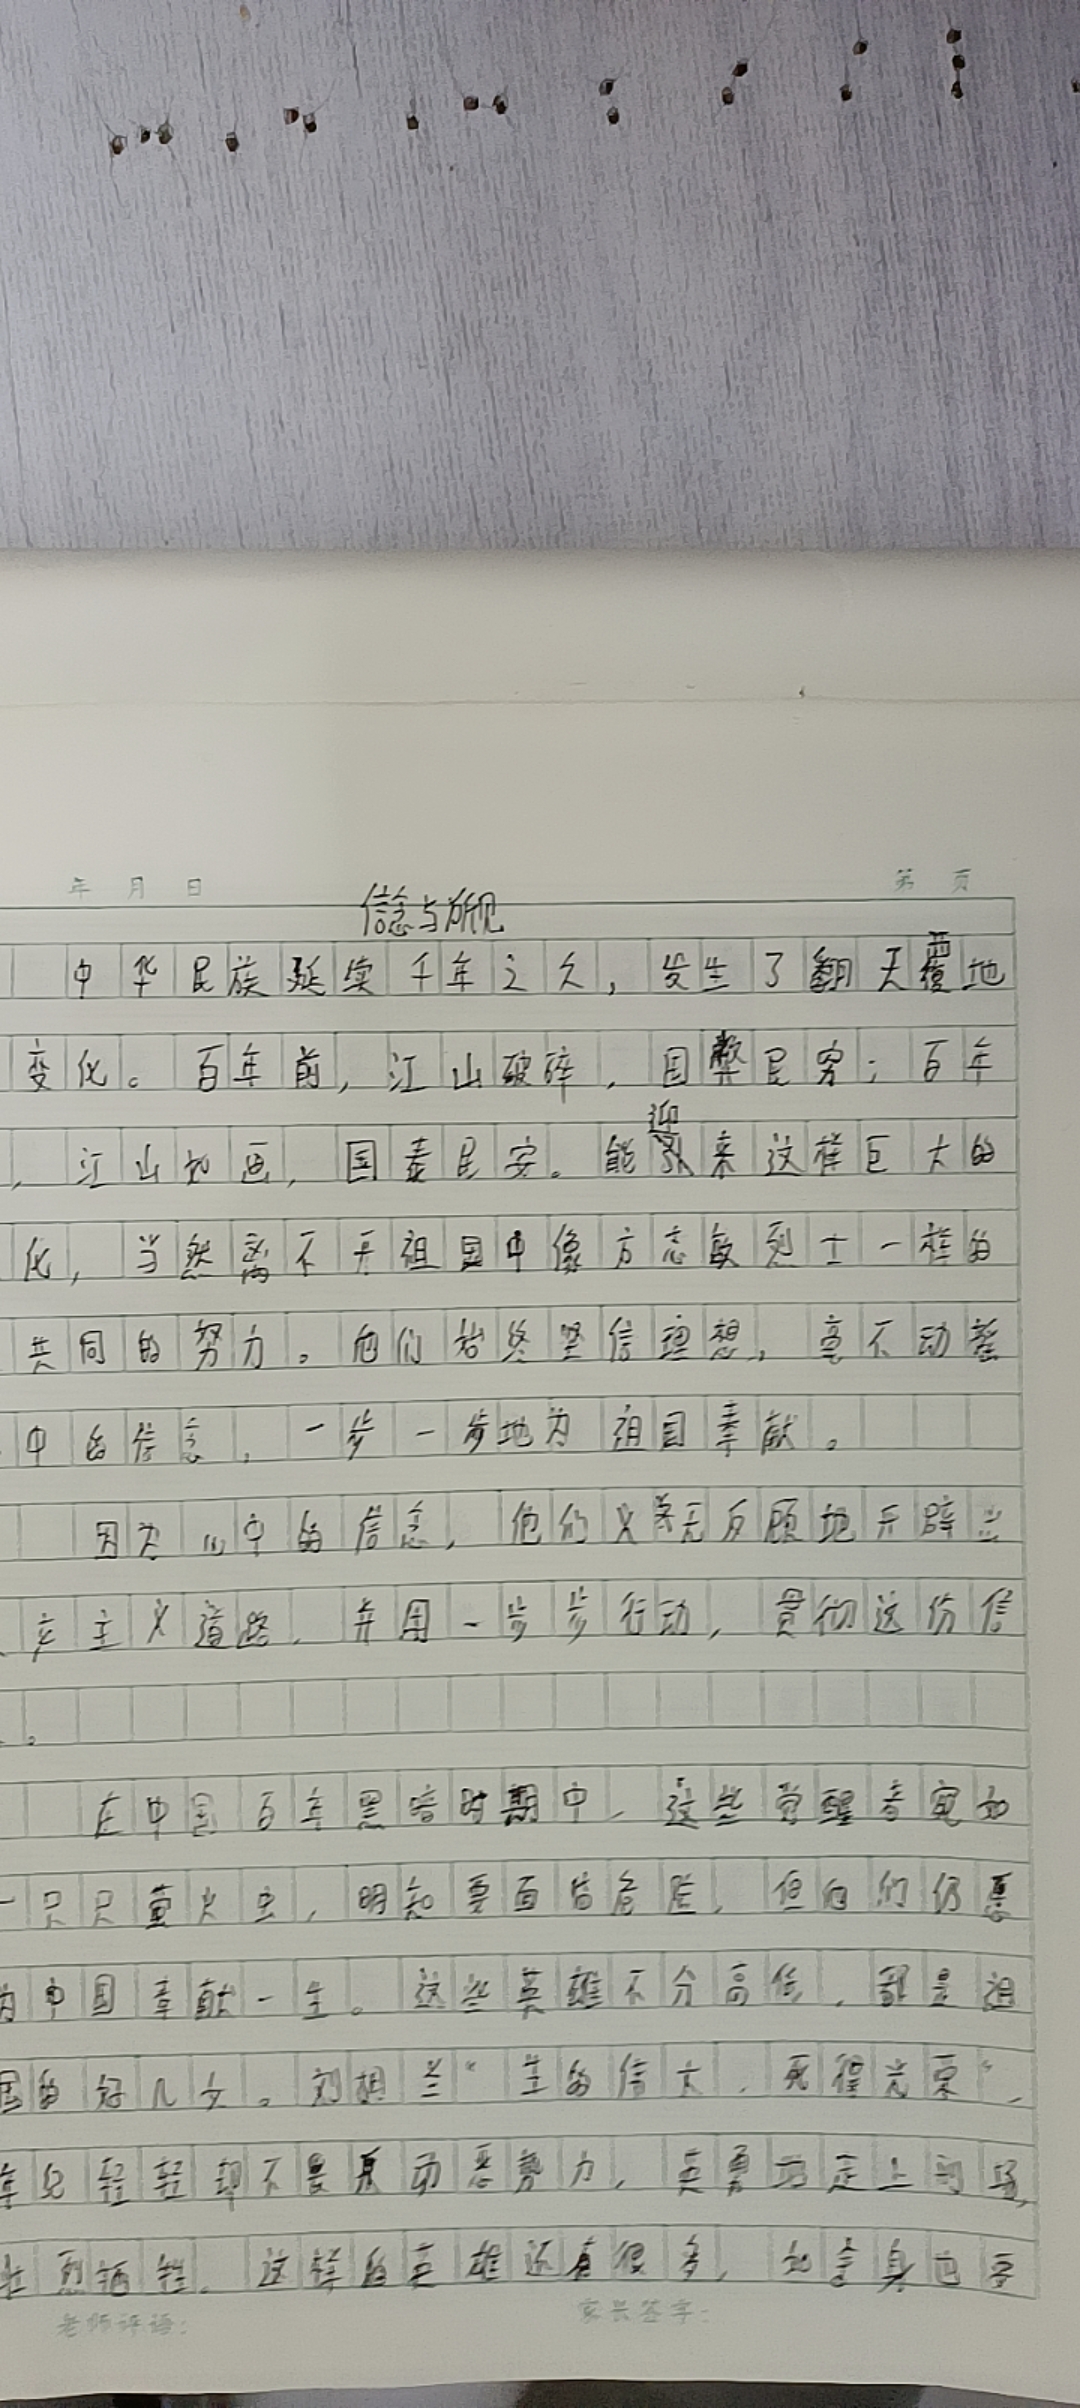 年 月 日
第 页
信念与所见
中华民族延续千年之久，发生了翻天覆地
变化。百年前，江山破碎，国弊民穷；百年
，江山如画，国泰民安。能迎来这样巨大的
化，当然离不开祖国中像方志敏烈士一样的
共同的努力。他们始终坚信理想，毫不动摇
中的信念，一步一步地为祖国奉献。
因为心中的信念，他们义无反顾地开辟出
主义道路，并用一步步行动，贯彻这份信
。
在中国百年黑暗时期中，这些觉醒者宛如
一只只萤火虫，明知要面临危险，但他们仍愿
为中国奉献一生。这些英雄不分高低，都是祖
国的好儿女。刘胡兰“生的伟大，死得光荣”，
年纪轻轻却不畏反动恶势力，英勇地走上刑场，
壮烈牺牲。这样的英雄还有很多，如舍身也要
老师评语：
家长签字：